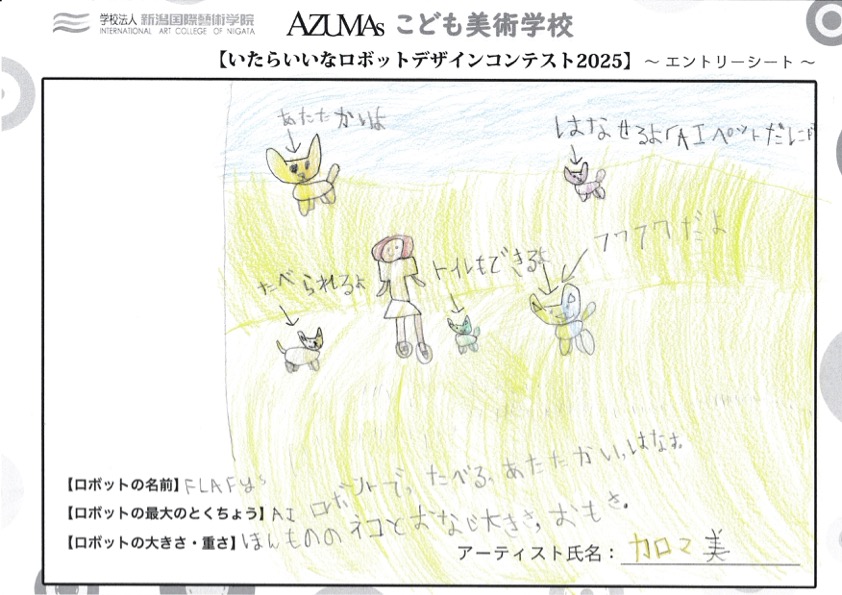 学校法人 新潟国際藝術学院
INTERNATIONAL ART COLLEGE OF NIIGATA
AZUMAs こども美術学校
【いたらいいなロボットデザインコンテスト2025】 ～ エントリーシート ～
あたたかいよ
はなせるよ AIペットだに
フワフワだよ
トイレもできるよ
たべられるよ
【ロボットの名前】FLAFYs
【ロボットの最大のとくちょう】AI ロボットで、たべる。あたたかい。はなす。
【ロボットの大きさ・重さ】ほんもののネコとおなじ大きさ、おもさ。
アーティスト氏名：カロマ 美